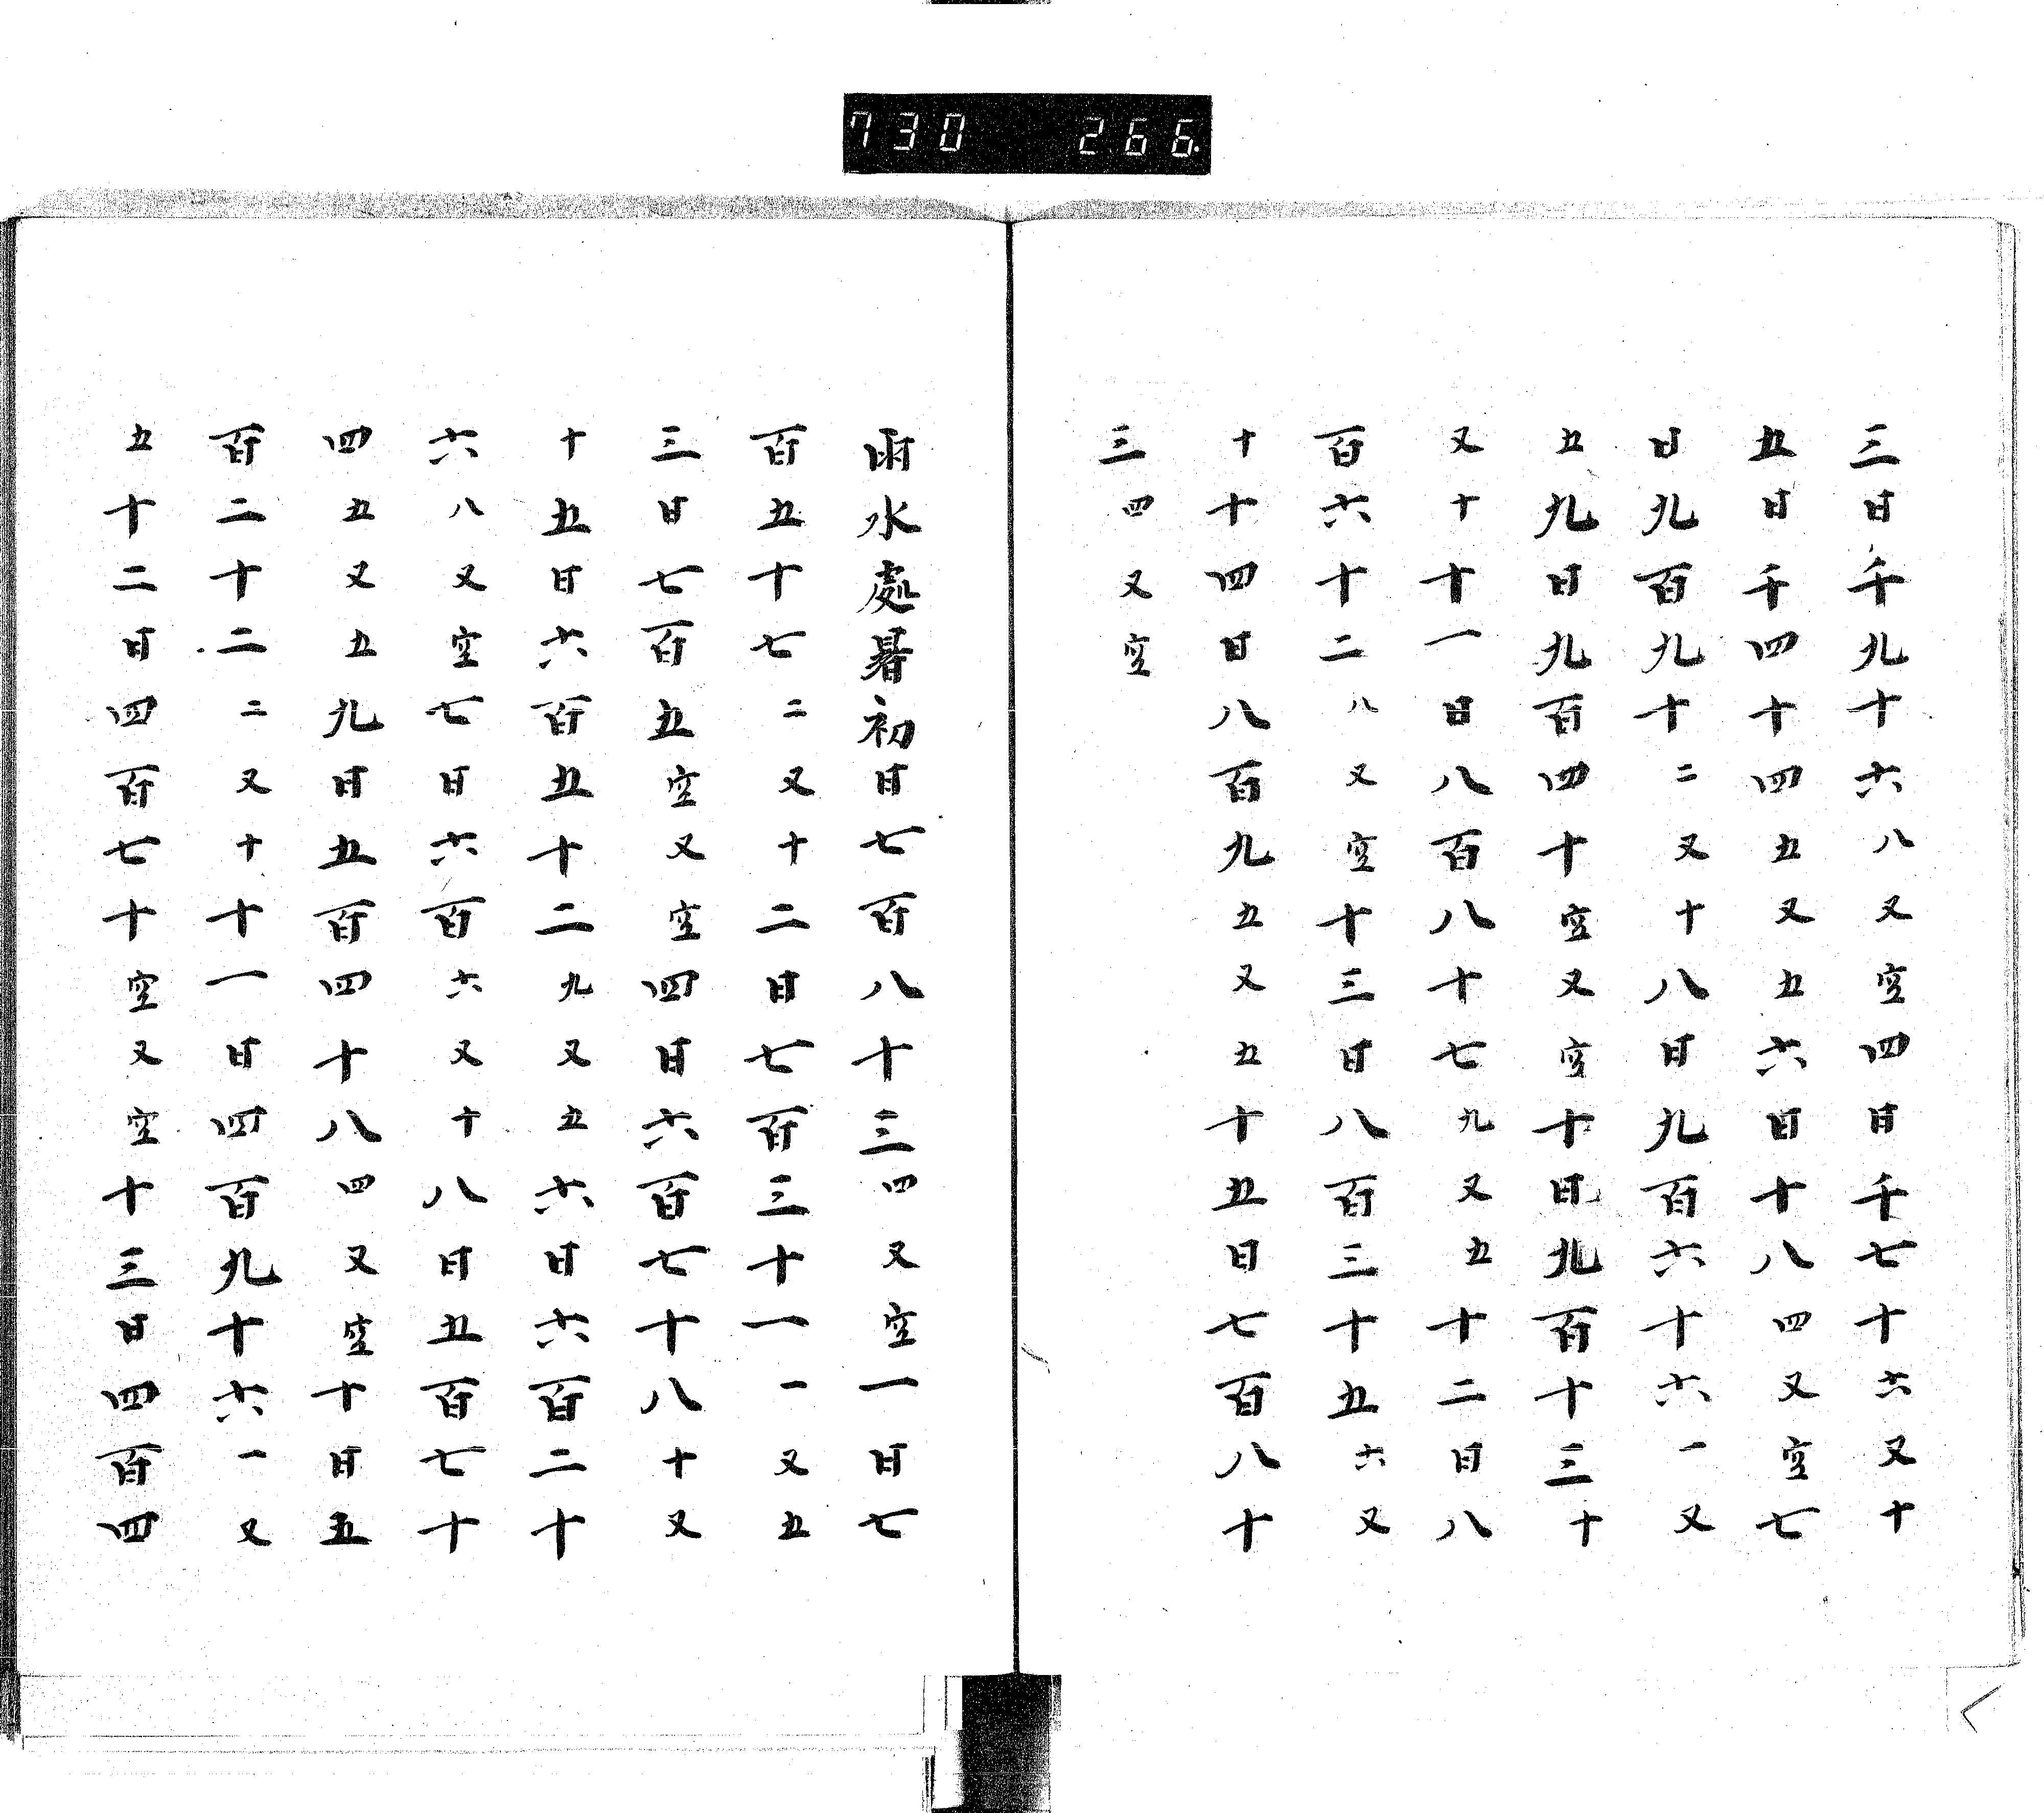 730 266
三日千九十六八又空四日千七十六又十
五日千四十四五又五六日十八四又空七
日九百九十二又十八日九百六十六一又
五九日九百四十空又空十日九百十三十
又十十一日八百八十七九又五十二日八
百六十二八又空十三日八百三十五六又
十十四日八百九五又五十五日七百八十
三四又空
雨水處暑初日七百八十三四又空一日七
百五十七二又十二日七百三十一一又五
三日七百五空又空四日六百七十八十又
十五日六百五十二九又五六日六百二十
六八又空七日六百六又十八日五百七十
四五又五九日五百四十八四又空十日五
百二十二二又十十一日四百九十六一又
五十二日四百七十空又空十三日四百四